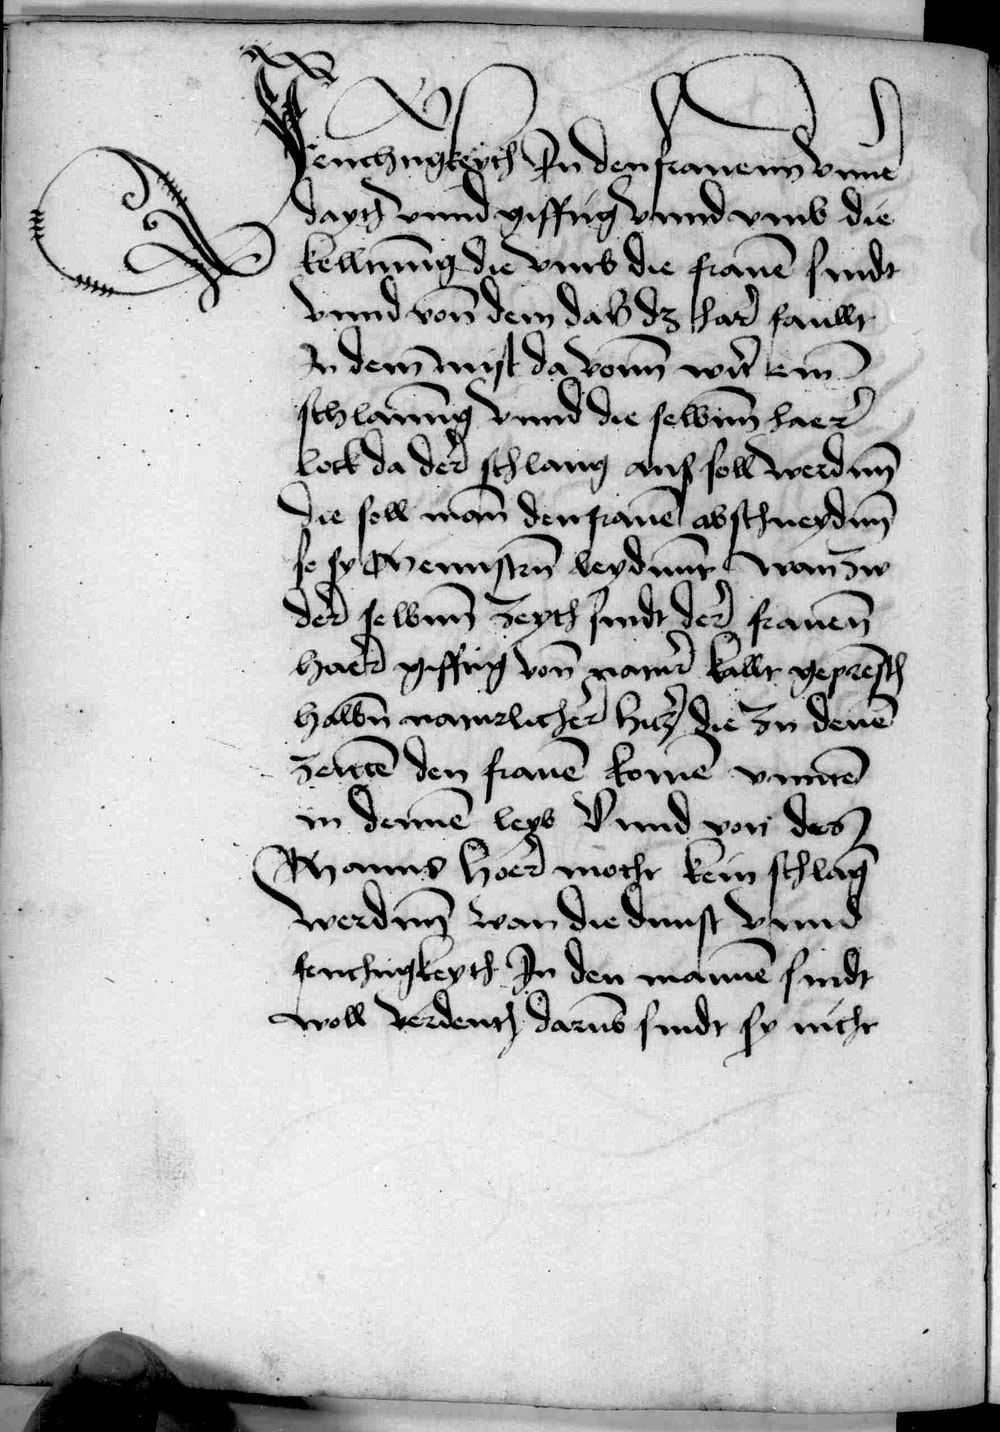 Feuchtigkeyth In den frauenn vnue
dayth vnnd gifftig vnnd vmb die
keltnung die vmb die frauē sindt
vnnd von dem das dz har faullt
In dem mist da vonn wirt ein
schlanng vnnd die selbinn haer
lock da der schlang auß soll werdenn
die soll man den frauē abschneydenn
so sy Menustrn leydennt wan zw
der selbinn zeyth sindt der frauenn
haer gifftig von natur kallt gepresth
halbn naturlicher hitz die zu denē
zeittē den frauē komē vnntē
in dennē leyb Vnnd von des
Manns hoer mocht kein schlāg
werdenn wan die dunst vnnd
feuchtigkeyth In den mannē sindt
woll verdeuth darūb sindt sy nicht